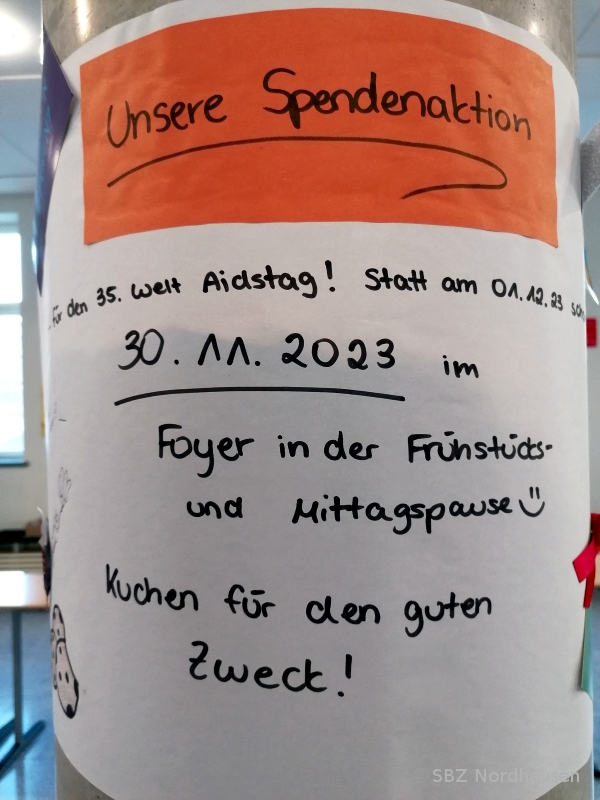 Unsere Spendenaktion
...für den 35. Welt Aidstag! Statt am 01.12.23
30.11.2023 im
Foyer in der Frühstücks-
und Mittagspause
Kuchen für den guten
Zweck!
SBZ Nordhausen